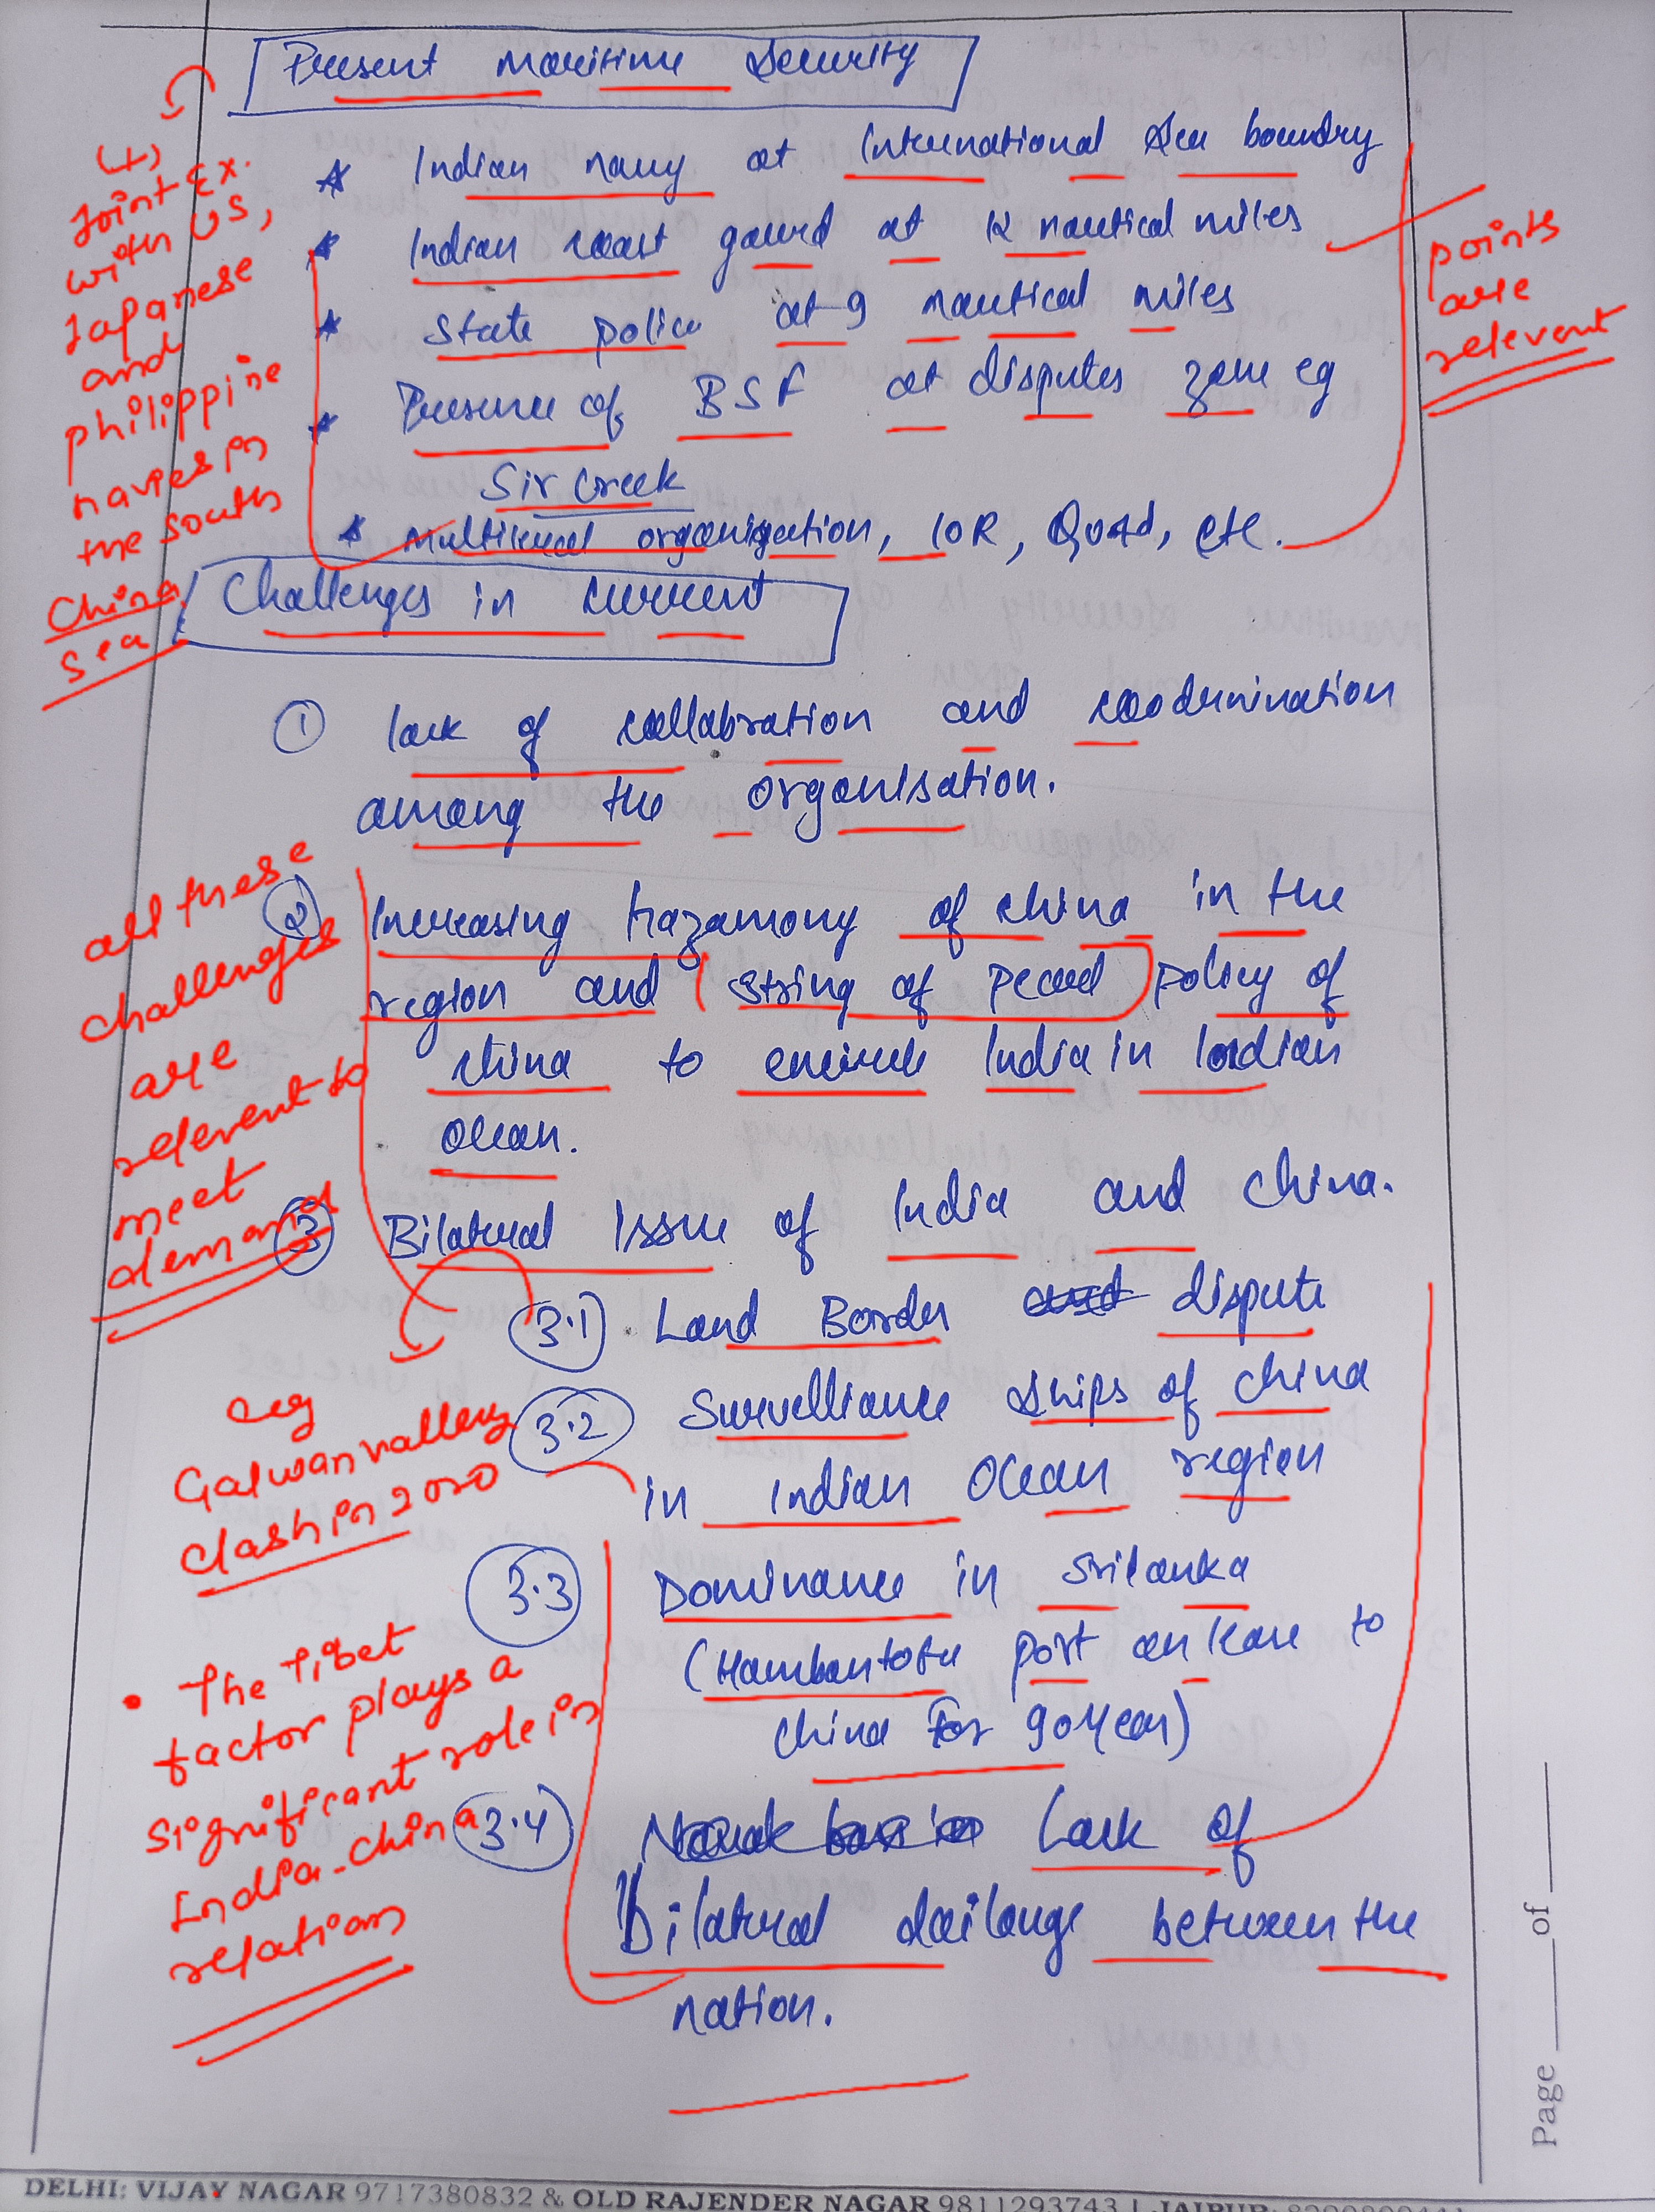 Present maritime Security
* Indian navy at International Sea boundry
* Indian coast gaurd at 12 nautical miles
* State police at 9 nautical miles
* Presence of BSF at disputes zone eg
Sir Creek
* Multilateral organisation, IOR, Quad, etc.
(+)
Joint Ex.
with US,
Japanese
and
philippine
navies in
the South
China
Sea
points
are
relevent
Challenges in current
① lack of collabration and coordunination
among the organisation.
② Increasing hazamony of china in the
region and (string of pearl) policy of
china to encircle India in Indian
Ocean.
③ Bilateral Issue of India and China.
all these
challenges
are
relevent to
meet
demand
3.1 Land Border and dispute
3.2 Survelliance ships of China
in Indian Ocean region
eg
Galwan valley
clash in 2020
3.3 Dominance in Srilanka
(Hambantota port on lease to
China for 90 year)
3.4 Lack of
Bilateral dailouge between the
nation.
• The Tibet
factor plays a
significant role in
India-China
relations
Page ___ of ___
DELHI: VIJAY NAGAR 9717380832 & OLD RAJENDER NAGAR 9811293743 | JAIPUR: